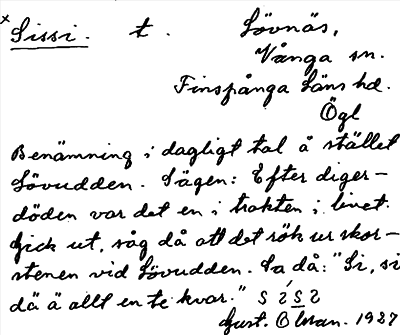 x Sissi. t. Lövnäs,
Vånga sn.
Finspånga läns hd.
Ögl
Benämning i dagligt tal å stället
Lövudden. Sägen: Efter diger-
döden var det en i trakten i livet.
Gick ut, såg då att det rök ur skor-
stenen vid Lövudden. Sa då: "Si, si
dä ä allt en te kvar."
Gust. Olsson. 1927